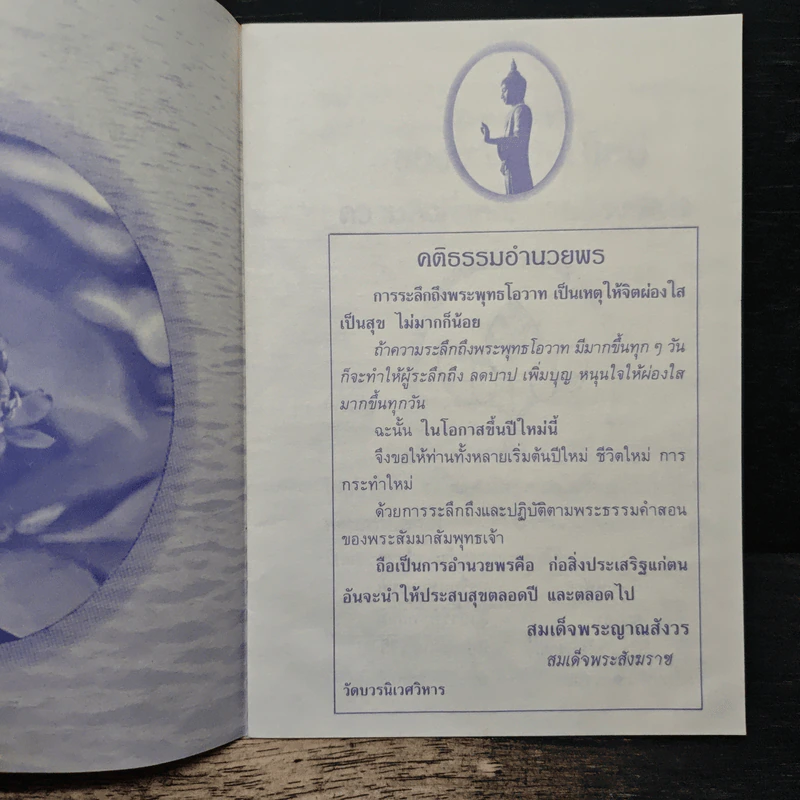 คติธรรมอำนวยพร
การระลึกถึงพระพุทธโอวาท เป็นเหตุให้จิตผ่องใส
เป็นสุข ไม่มากก็น้อย
ถ้าความระลึกถึงพระพุทธโอวาท มีมากขึ้นทุก ๆ วัน
ก็จะทำให้ผู้ระลึกถึง ลดบาป เพิ่มบุญ หนุนใจให้ผ่องใส
มากขึ้นทุกวัน
ฉะนั้น ในโอกาสขึ้นปีใหม่นี้
จึงขอให้ท่านทั้งหลายเริ่มต้นปีใหม่ ชีวิตใหม่ การ
กระทำใหม่
ด้วยการระลึกถึงและปฏิบัติตามพระธรรมคำสอน
ของพระสัมมาสัมพุทธเจ้า
ถือเป็นการอำนวยพรคือ ก่อสิ่งประเสริฐแก่ตน
อันจะนำให้ประสบสุขตลอดปี และตลอดไป
สมเด็จพระญาณสังวร
สมเด็จพระสังฆราช
วัดบวรนิเวศวิหาร